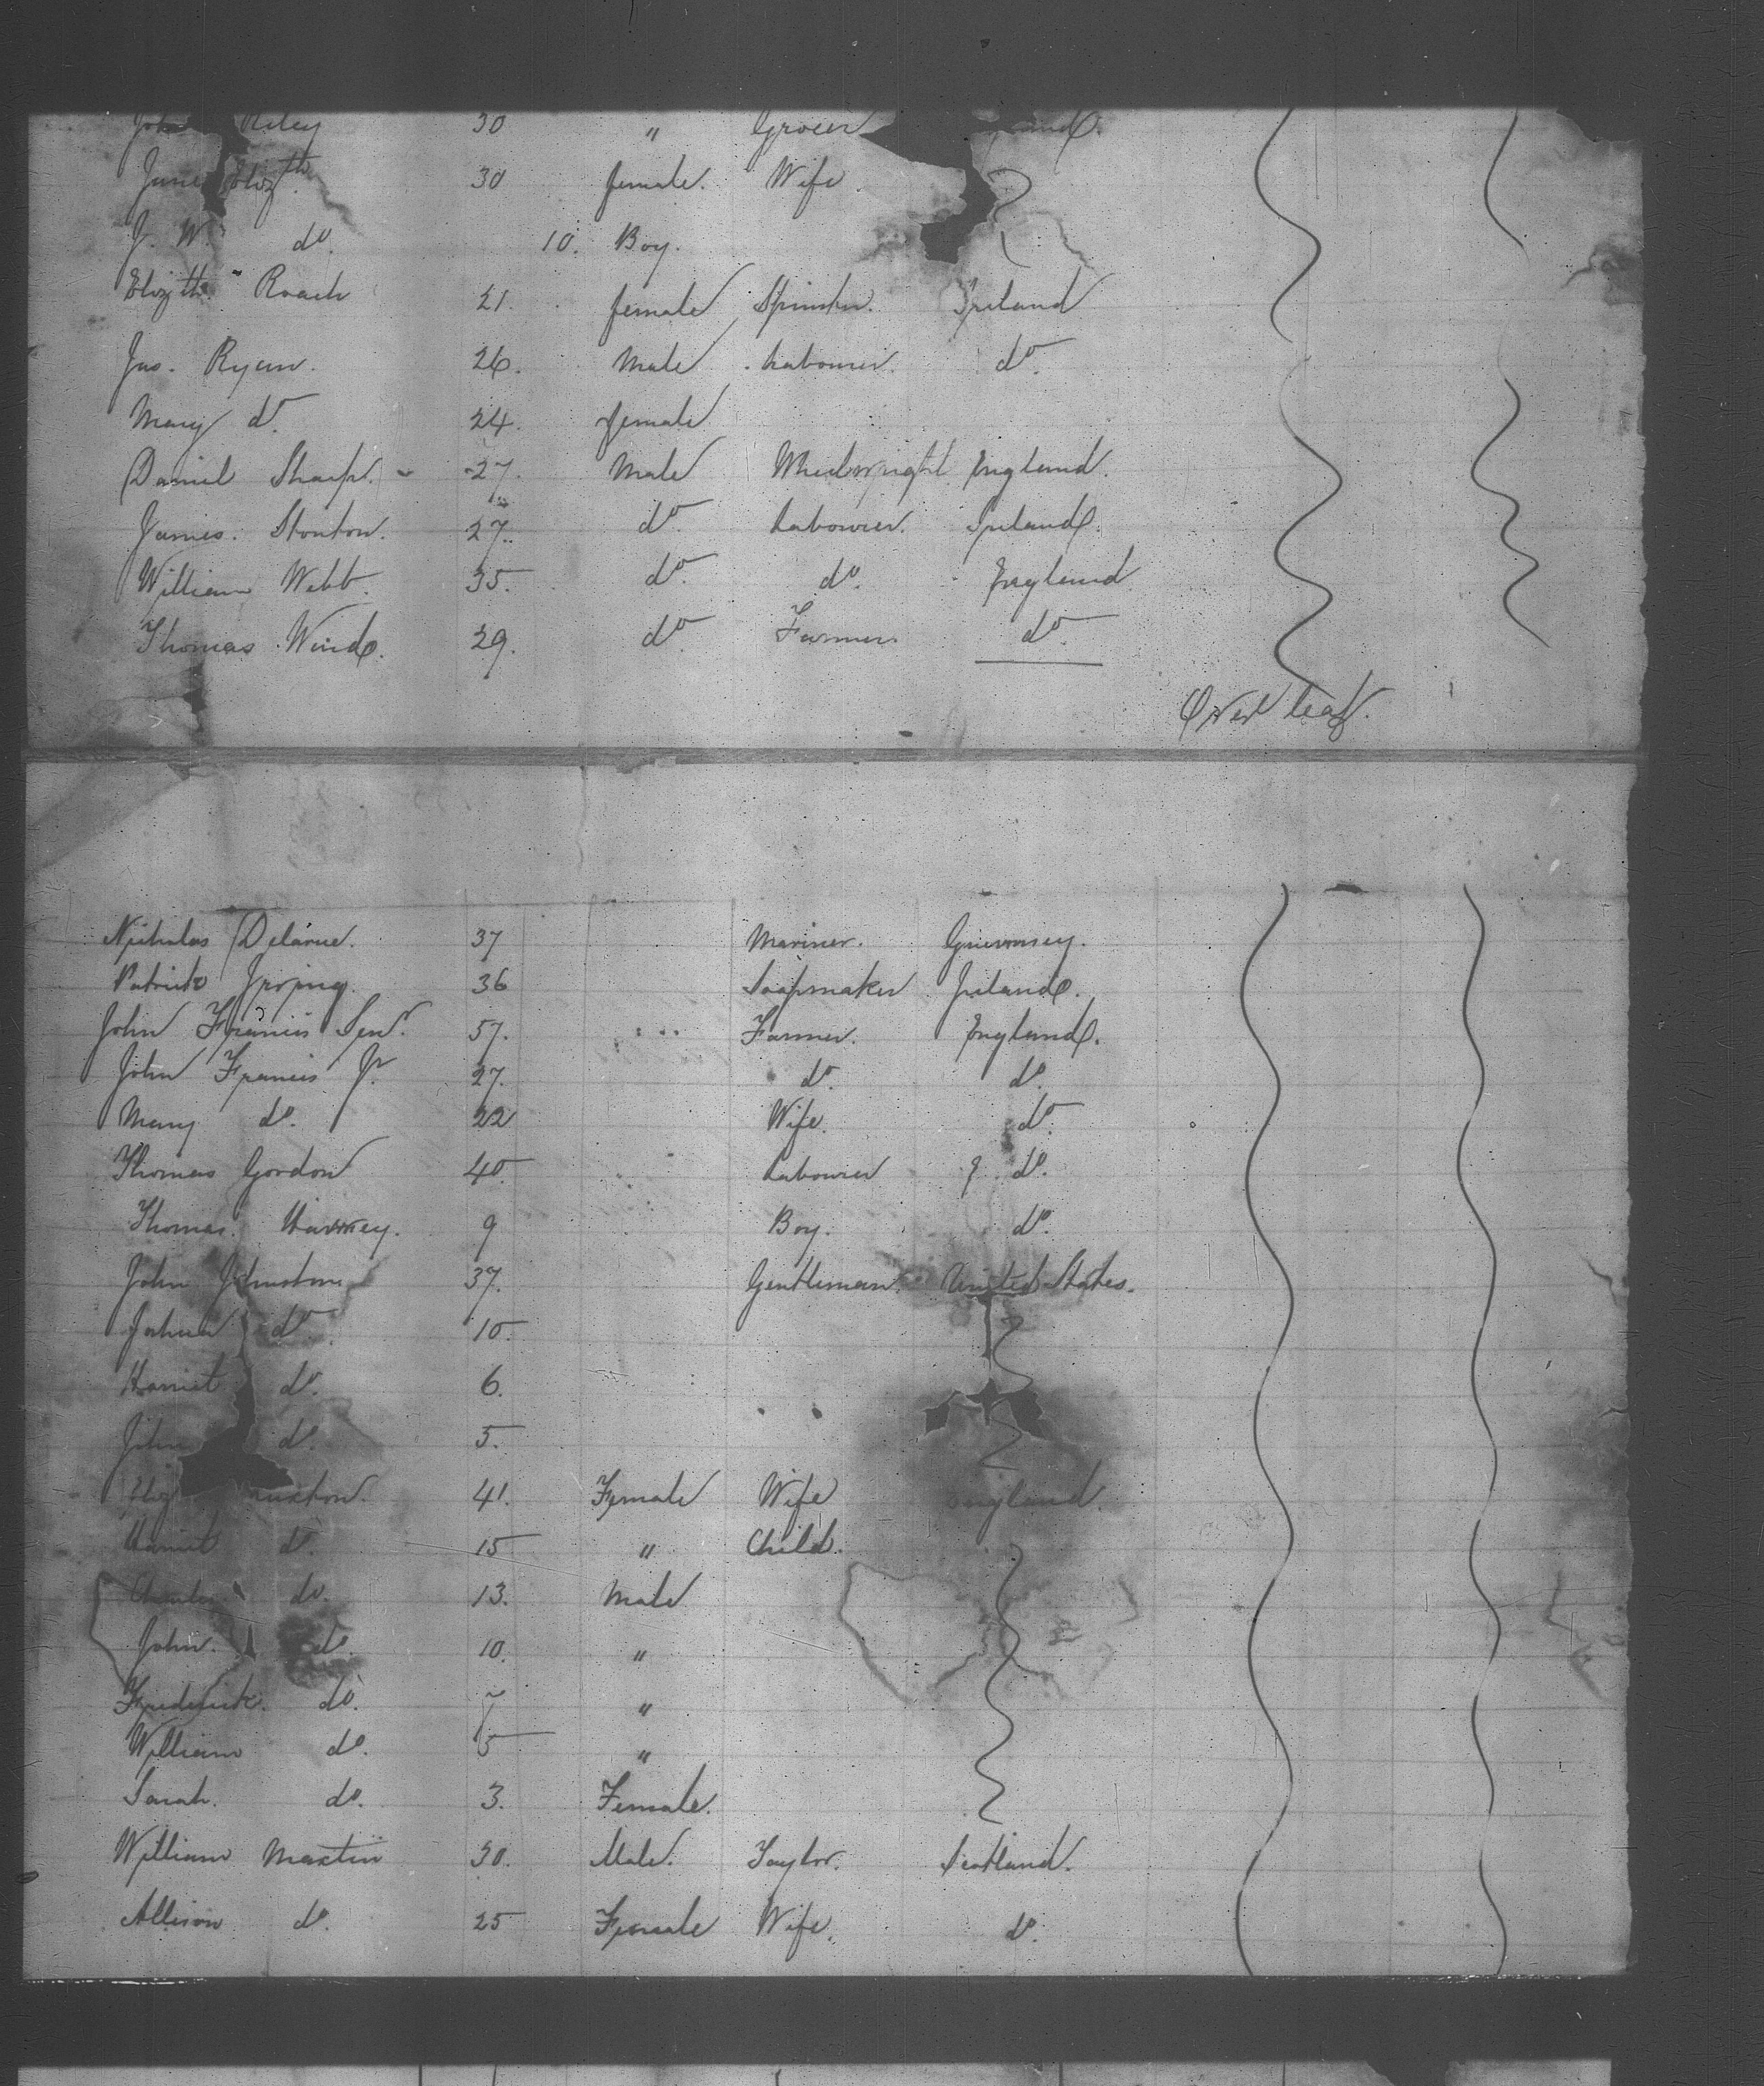 John Riley 30 " Grocer
Jane Elizth 30 female. Wife
J. W. do. 10. Boy.
Elizth Roach 21. female Spinster. Ireland
Jas. Ryan. 26. Male Labourer. do.
Mary do. 24. female
Daniel Sharp. 27. Male Wheelwright England.
James. Stonton. 27. do. Labourer. Ireland.
William Webb. 35. do. do. England
Thomas Wind. 29. do. Farmer. do.
Over leaf.
Nicholas Delarue. 37 Mariner. Guernsey.
Patrick 36 Soapmaker Ireland.
John Francis Senr. 57. Farmer. England.
John Francis Jr. 27. do. do.
Mary do. 22 Wife. do.
Thomas Gordon 40. Labourer do.
Thomas. Harvey. 9 Boy. do.
John Johnston 37. Gentleman. United States.
do. 10.
Harriet do. 6.
John do. 5.
41. Female Wife England.
Harriet do. 15 " Child.
Charles do. 13. Male
John. do. 10. "
Frederick. do. 7 "
William do. 5 "
Sarah. do. 3. Female.
William Martin 30. Male. Taylor. Scotland.
Allison do. 25 Female Wife. do.